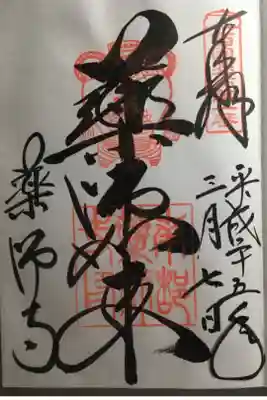 奉拝
平成廿五年
三月七日
薬師如来
薬師寺